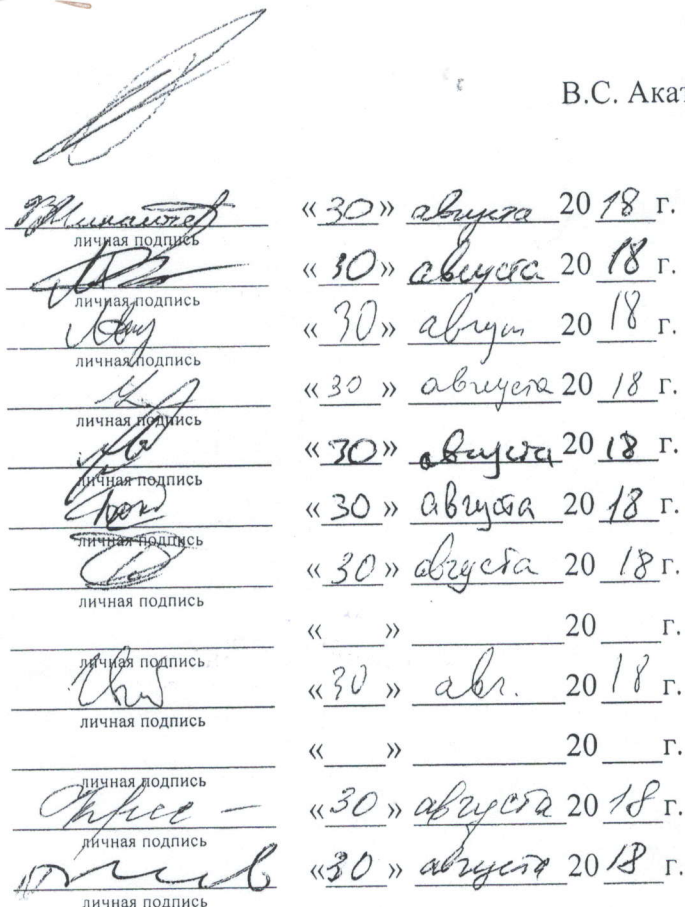 В.С. Акат
«30» августа 20 18 г.
личная подпись
«30» августа 20 18 г.
личная подпись
«30» август 20 18 г.
личная подпись
«30» августа 20 18 г.
личная подпись
«30» августа 20 18 г.
личная подпись
«30» августа 20 18 г.
личная подпись
«30» августа 20 18 г.
личная подпись
«___» ___ 20 ___ г.
личная подпись
«30» авг. 20 18 г.
личная подпись
«___» ___ 20 ___ г.
личная подпись
«30» августа 20 18 г.
личная подпись
«30» августа 20 18 г.
личная подпись